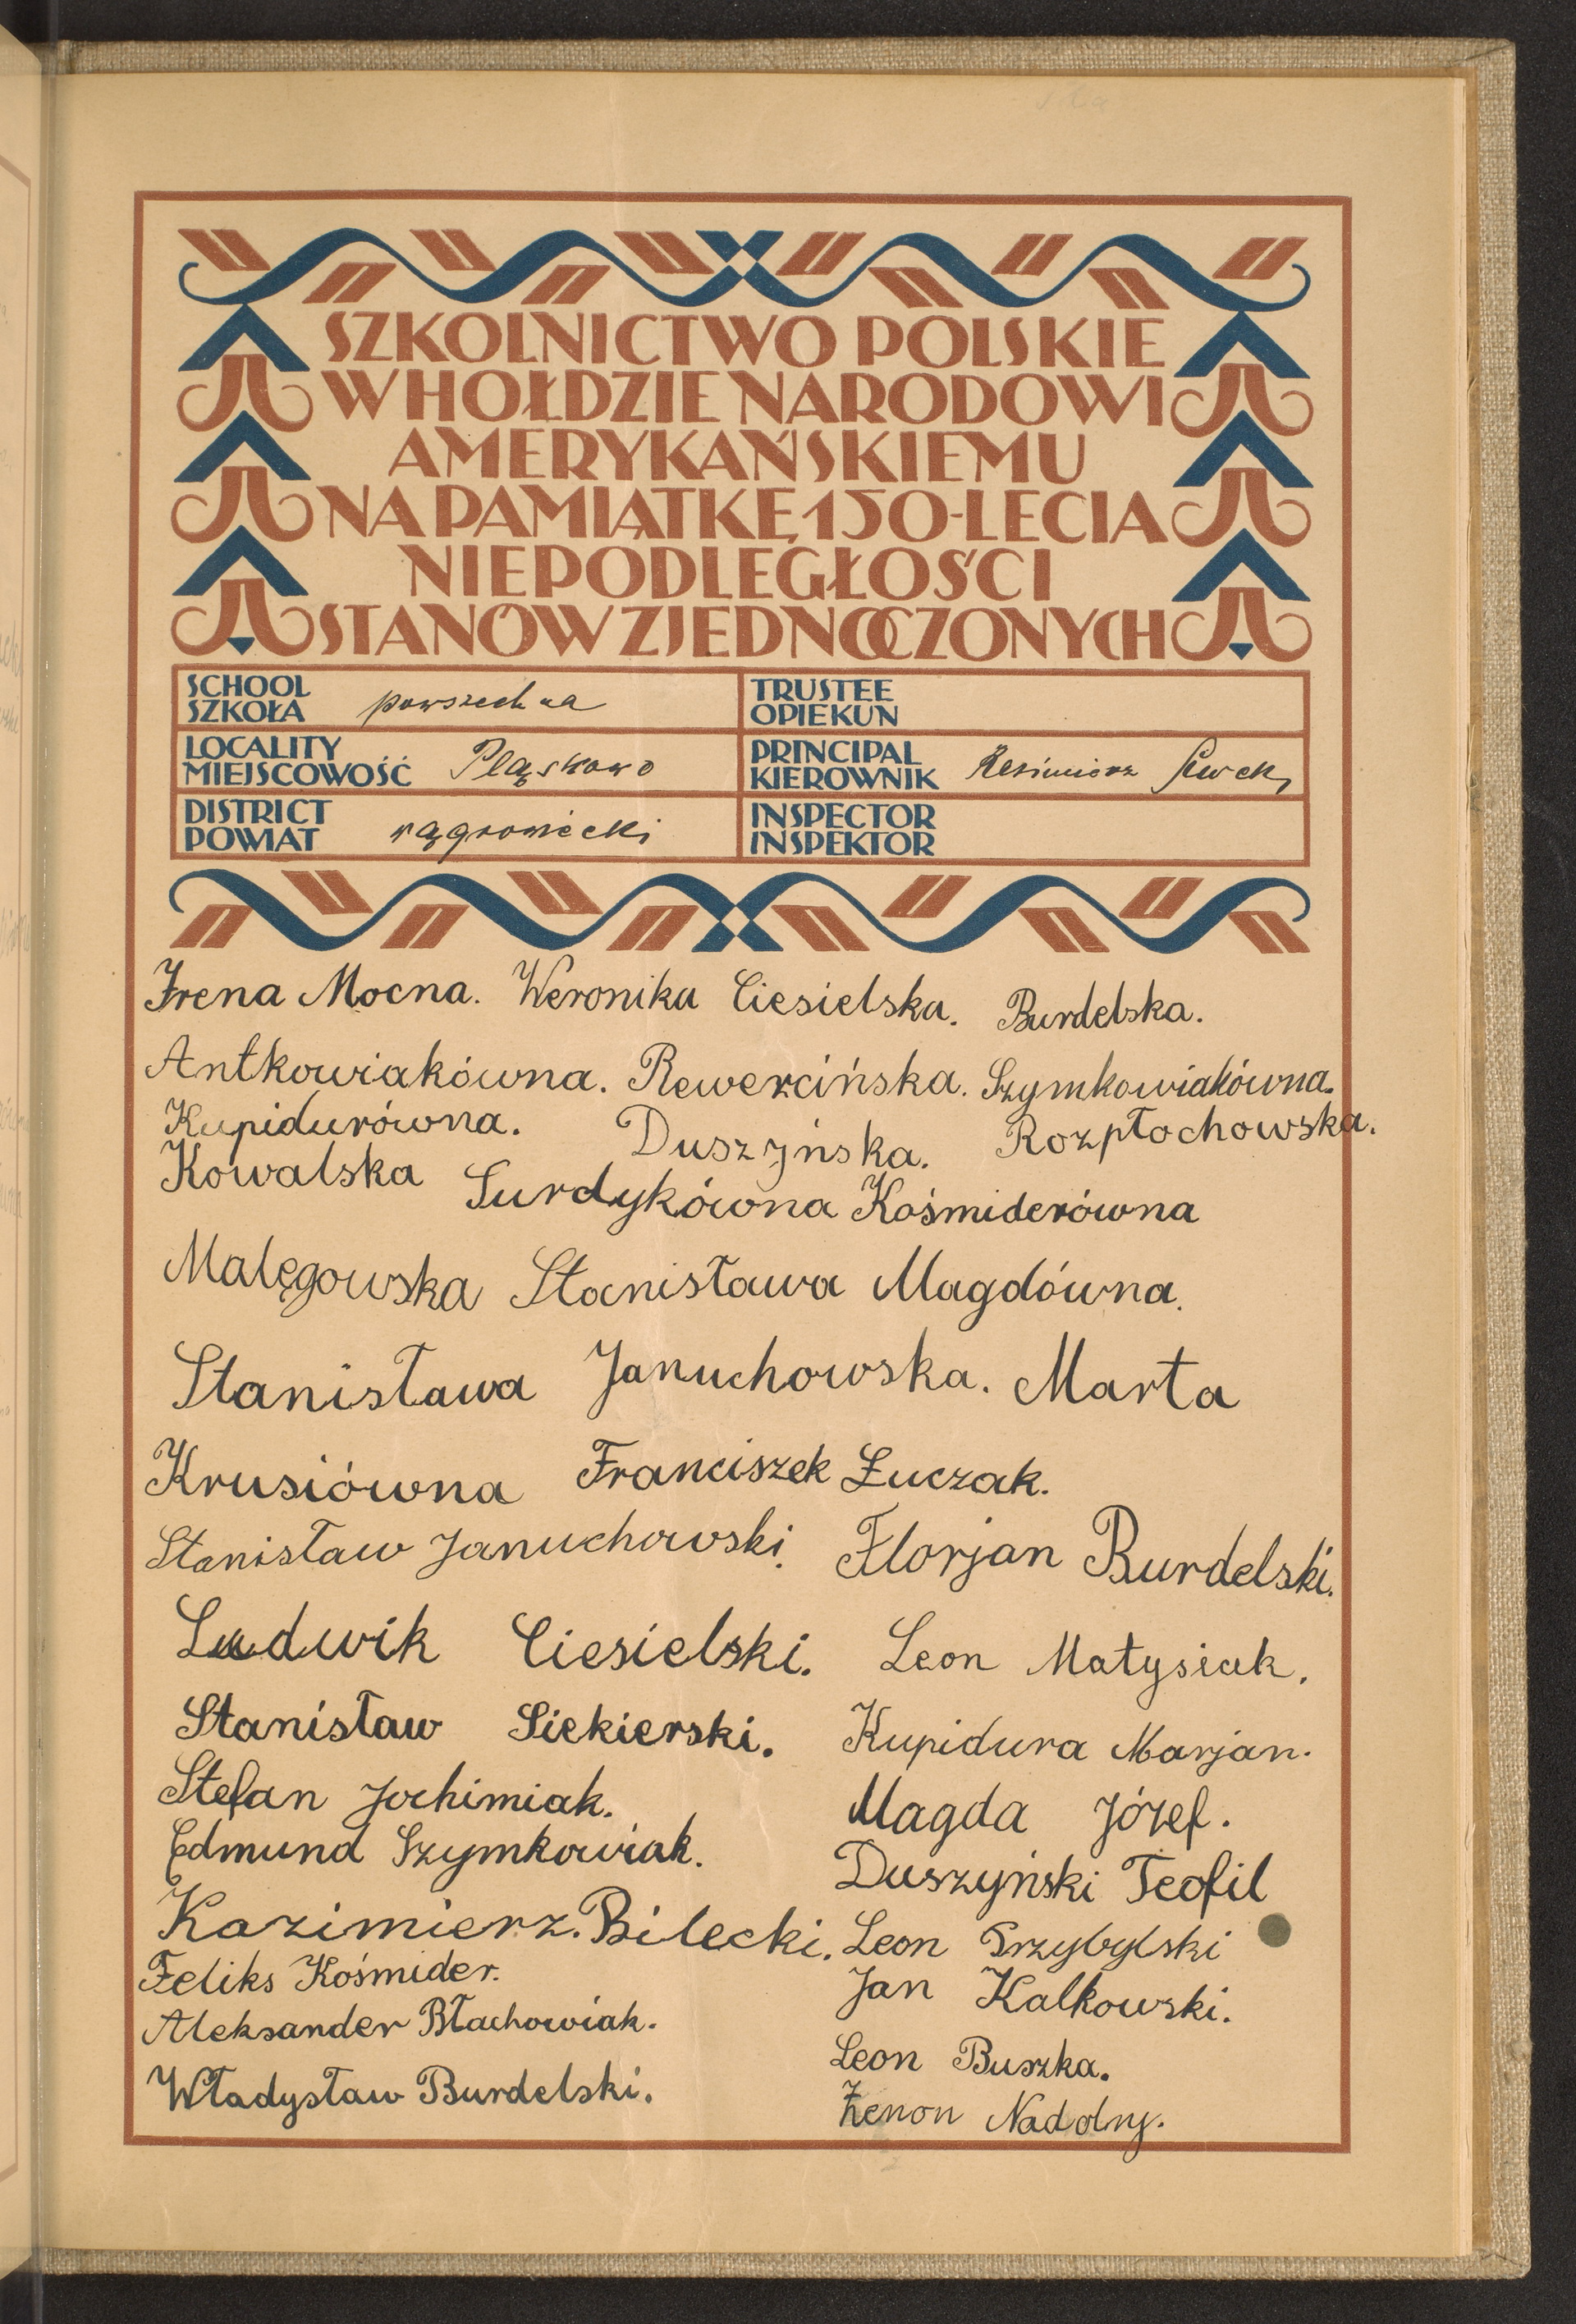 SZKOLNICTWO POLSKIE
W HOŁDZIE NARODOWI
AMERYKAŃSKIEMU
NA PAMIĄTKĘ 150-LECIA
NIEPODLEGŁOŚCI
STANÓW ZJEDNOCZONYCH
SCHOOL
SZKOŁA powszechna
TRUSTEE
OPIEKUN
LOCALITY
MIEJSCOWOŚĆ Pląskowo
PRINCIPAL
KIEROWNIK
DISTRICT
POWIAT wągrowiecki
INSPECTOR
INSPEKTOR
Irena Mocna. Weronika Ciesielska. Burdelska.
Antkowiakówna. Rewercińska. Szymkowiakówna.
Kupidurówna. Duszyńska. Rozpłochowska.
Kowalska Surdykówna Kośmiderówna
Malęgowska Stanisława Magdówna.
Stanisława Januchowska. Marta
Krusiówna Franciszek Łuczak.
Stanisław Januchowski. Florjan Burdelski.
Ludwik Ciesielski. Leon Matysiak.
Stanisław Siekierski. Kupidura Marjan.
Stefan Jochimiak. Magda Józef.
Edmund Szymkowiak. Duszyński Teofil
Kazimierz. Bilecki. Leon Przybylski
Feliks Kośmider. Jan Kalkowski.
Aleksander Błachowiak. Leon Buszka.
Władysław Burdelski. Zenon Nadolny.